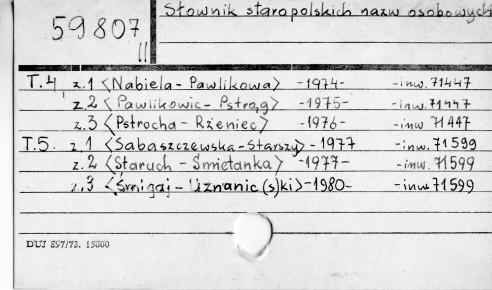 Słownik staropolskich nazw osobowych
59807
II
T.4, z.1 <Nabiela - Pawlikowa> -1974- -inw. 71447
z.2 <Pawlikowic - Pstrąg> -1975- -inw. 71447
z.3 <Pstrocha - Rżeniec> -1976- -inw. 71447
T.5. z.1 <Sabaszczewska - Starszy> - 1977 -inw. 71599
z.2 <Staruch - Śmietanka> -1977- -inw. 71599
z.3 <Śmigaj - Uznanic(s)ki> -1980- -inw. 71599
DUJ 897/73. 15000